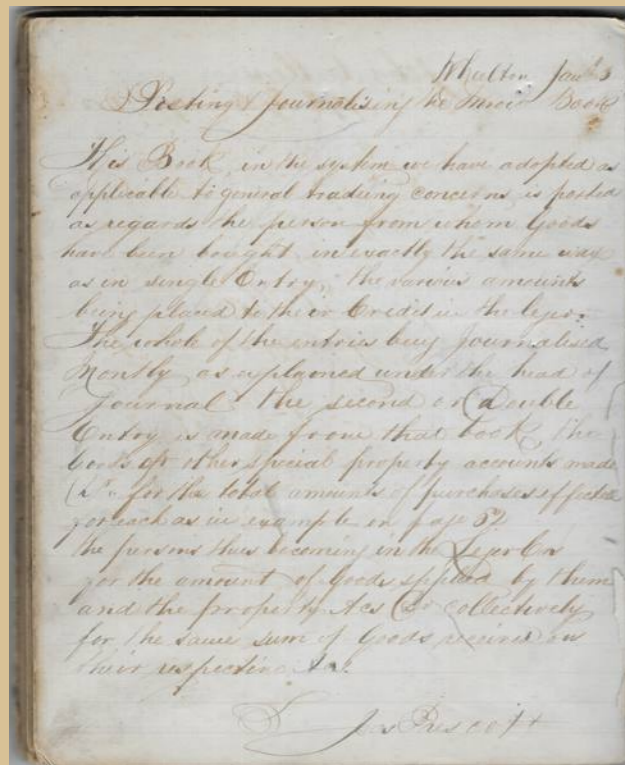 Whulton Jan
Posting & Journalising the Book
This Book, in the system we have adopted as
applicable to general tradeing concerns is posted
as regards the person from whom Goods
have been bought in exactly the same way
as in single Entry, the various amounts
being placed to their Credit in the
The whole of the entries being Journalised
Montly as explained under the head of
Journal the second or Double
Entry is made from that book, the
Goods or other special property accounts made
Dr for the total amounts of purchases effected
for each as in example on page 52
The persons thus becoming in the Leger Crs
for the amount of Goods supplied by them
and the property Acs Dr collectively
for the same sum of Goods received on
their respective Acs
Jas Prescott